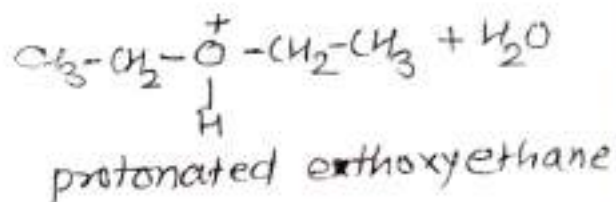 CH₃-CH₂-O⁺-CH₂-CH₃ + H₂O
|
H
protonated exthoxyethane